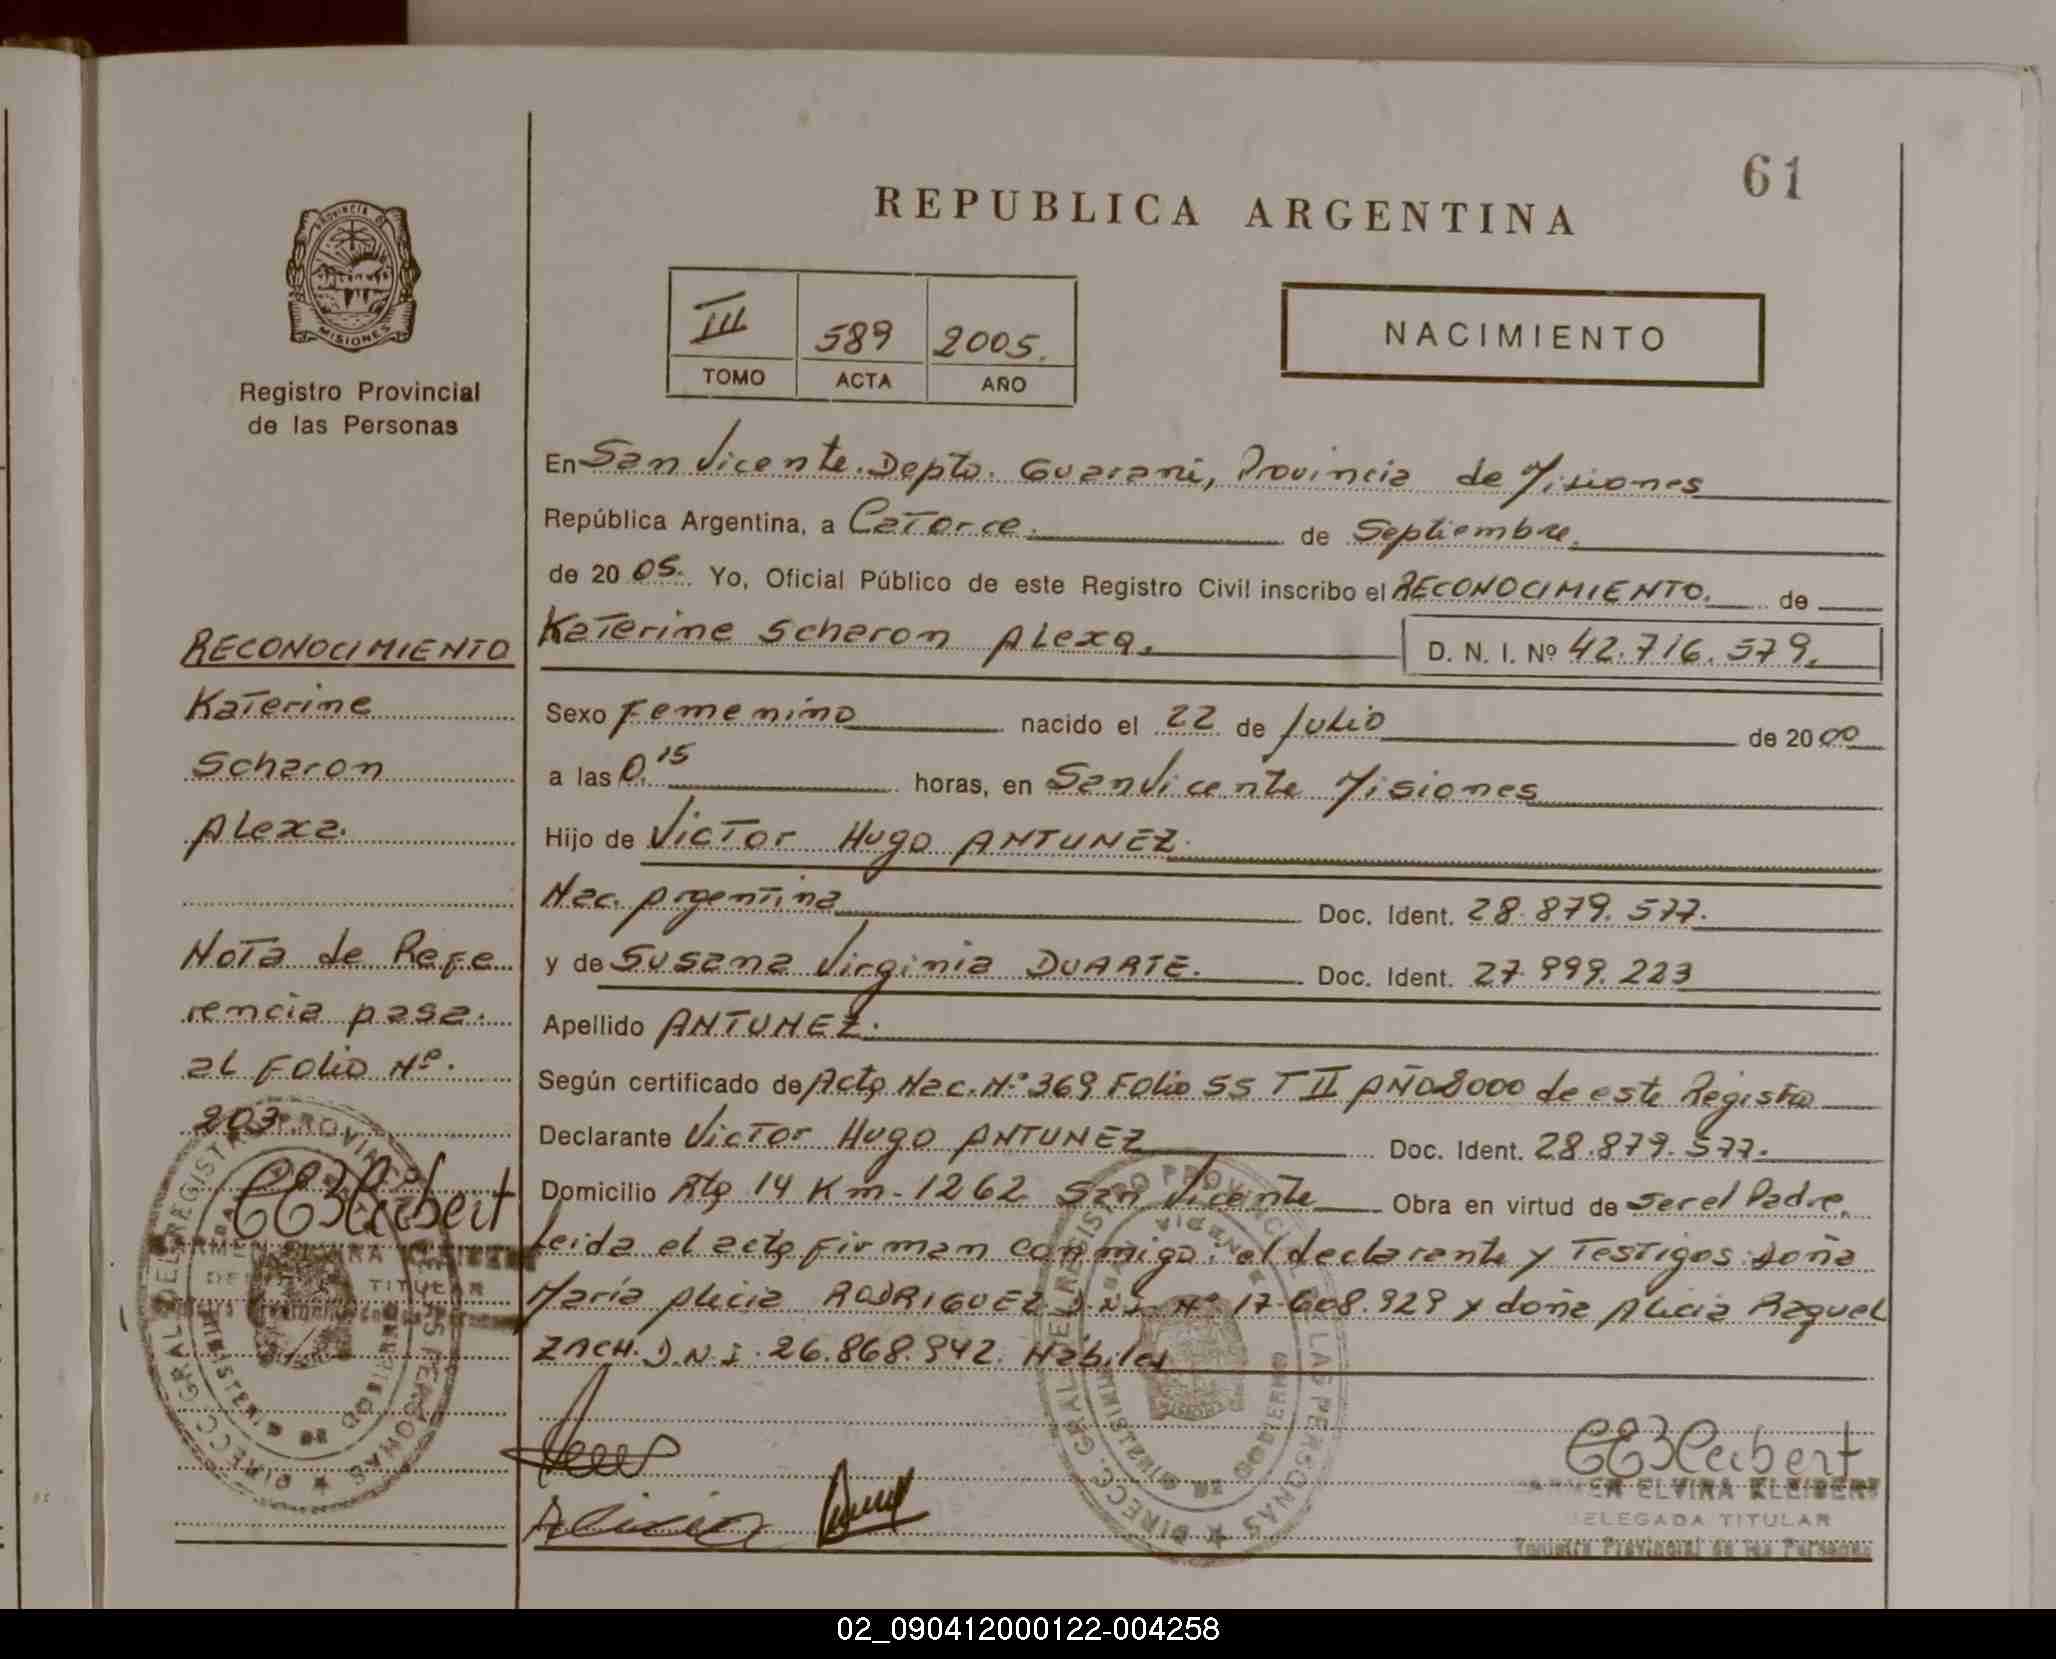 61
REPUBLICA ARGENTINA
PROVINCIA DE
MISIONES
Registro Provincial
de las Personas
III 589 2005.
TOMO ACTA AÑO
NACIMIENTO
En San Vicente. Depto. Guarani, Provincia de Misiones
República Argentina, a Catorce. de Septiembre.
de 20 05. Yo, Oficial Público de este Registro Civil inscribo el RECONOCIMIENTO. de
Katerine Scharon Alexa. D. N. I. Nº 42.716.579.
Sexo Femenino nacido el 22 de Julio de 20 00
a las 0,15 horas, en San Vicente Misiones
Hijo de Victor Hugo ANTUNEZ.
Nac. Argentina Doc. Ident. 28.879.577.
y de Susana Virginia DUARTE. Doc. Ident. 27.999.223
Apellido ANTUNEZ.
Según certificado de Acta Nac. N.º 369 Folio 55 T II AÑO 2000 de este Registro
Declarante Victor Hugo ANTUNEZ Doc. Ident. 28.879.577.
Domicilio Rta 14 Km-1262 San Vicente Obra en virtud de ser el Padre.
Leida el acta firman conmigo: el declarante y Testigos: doña
María Alicia RODRIGUEZ D.N.I. Nº 17.608.929 y doña Alicia Raquel
ZACH. D.N.I. 26.868.942. Hábiles
RECONOCIMIENTO
Katerine
Scharon
Alexa.
Nota de Refe
rencia pasa.
al Folio Nº.
203.
CEKleibert
TITULAR
DIRECC. GRAL. DEL REGISTRO PROVINCIAL DE LAS PERSONAS
MINISTERIO DE GOBIERNO
DIRECC. GRAL. DEL REGISTRO PROVINCIAL DE LAS PERSONAS
MINISTERIO DE GOBIERNO
Alicia
CEKleibert
CARMEN ELVIRA KLEIBERT
DELEGADA TITULAR
Registro Provincial de las Personas
02_090412000122-004258